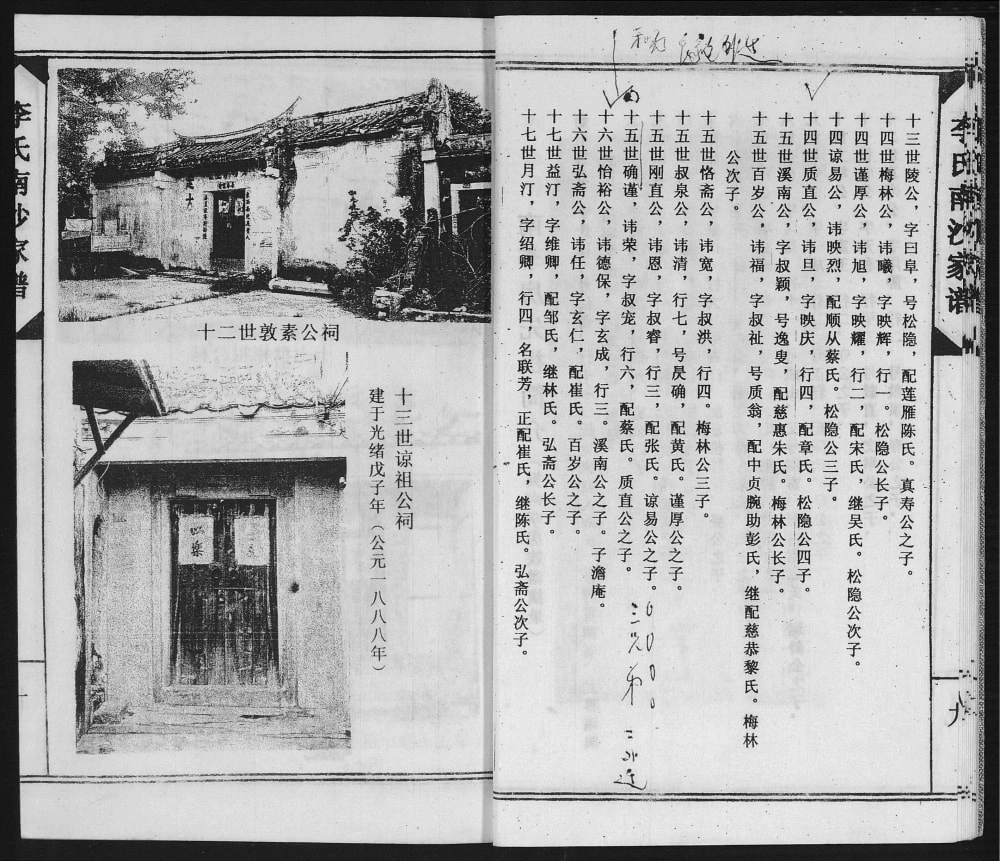 李氏南沙家谱
十三世陵公，字曰阜，号松隐，配莲雁陈氏。真寿公之子。
十四世梅林公，讳曦，字映辉，行一。松隐公长子。
十四世谨厚公，讳旭，字映耀，行二，配宋氏，继吴氏。松隐公次子。
十四谅易公，讳映烈，配顺从蔡氏。松隐公三子。
十四世质直公，讳旦，字映庆，行四，配章氏。松隐公四子。
十五世溪南公，字叔颖，号逸叟，配慈惠朱氏。梅林公长子。
十五世百岁公，讳福，字叔祉，号质翁，配中贞腕助彭氏，继配慈恭黎氏。梅林
公次子。
十五世恪斋公，讳宽，字叔洪，行四。梅林公三子。
十五世叔泉公，讳清，行七，号昃确，配黄氏。谨厚公之子。
十五世刚直公，讳恩，字叔睿，行三，配张氏。谅易公之子。
十五世确谨，讳荣，字叔宠，行六，配蔡氏。质直公之子。
十六世怡裕公，讳德保，字玄成，行三。溪南公之子。子澹庵。
十六世弘斋公，讳任，字玄仁，配崔氏。百岁公之子。
十七世益汀，字维卿，配邹氏，继林氏。弘斋公长子。
十七世月汀，字绍卿，行四，名联芳，正配崔氏，继陈氏。弘斋公次子。
三兄弟
九
十二世敦素公祠
十三世谅祖公祠
建于光绪戊子年（公元一八八八年）
李氏南沙家谱